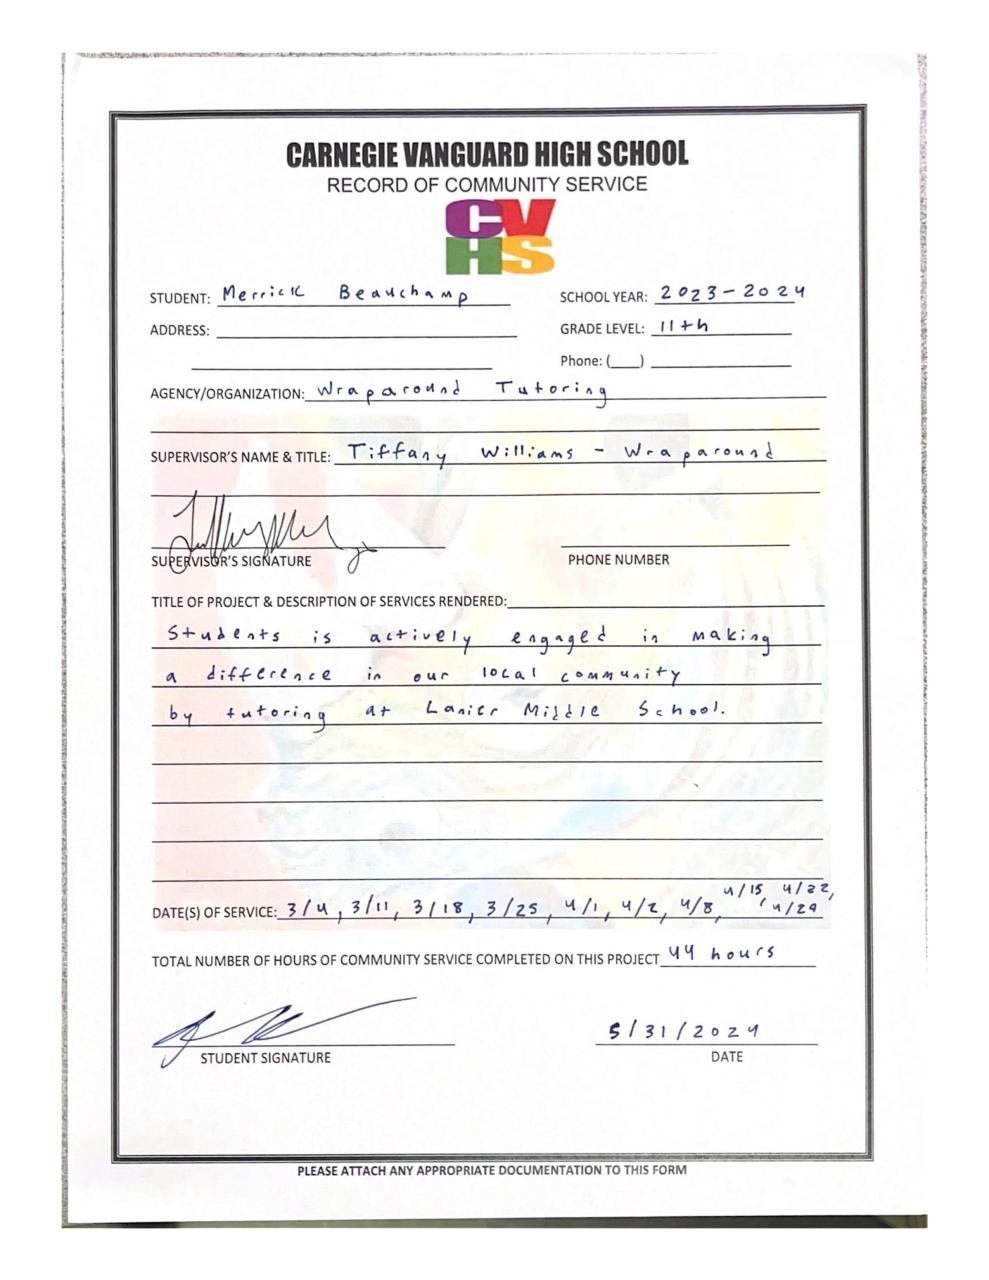 CARNEGIE VANGUARD HIGH SCHOOL
RECORD OF COMMUNITY SERVICE
CV
HS
STUDENT: Merrick Beauchamp
SCHOOL YEAR: 2023-2024
ADDRESS:
GRADE LEVEL: 11th
Phone: (___)
AGENCY/ORGANIZATION: Wraparound Tutoring
SUPERVISOR'S NAME & TITLE: Tiffany Williams - Wraparound
SUPERVISOR'S SIGNATURE
PHONE NUMBER
TITLE OF PROJECT & DESCRIPTION OF SERVICES RENDERED:
Students is actively engaged in making
a difference in our local community
by tutoring at Lanier Middle School.
DATE(S) OF SERVICE: 3/4, 3/11, 3/18, 3/25, 4/1, 4/2, 4/8, 4/15, 4/22,
4/29
TOTAL NUMBER OF HOURS OF COMMUNITY SERVICE COMPLETED ON THIS PROJECT 44 hours
5/31/2024
STUDENT SIGNATURE
DATE
PLEASE ATTACH ANY APPROPRIATE DOCUMENTATION TO THIS FORM